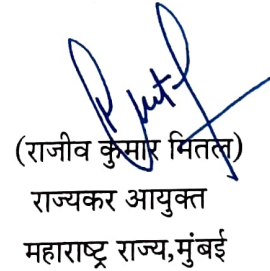 (राजीव कुमार मितल)
राज्यकर आयुक्त
महाराष्ट्र राज्य,मुंबई